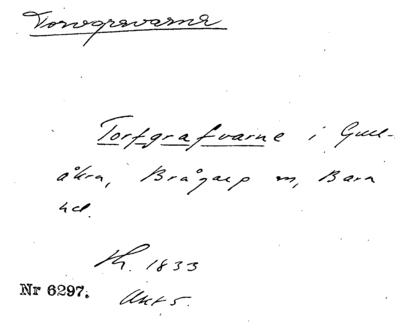 Torvgravarna
Torfgrafvarne i Gull-
åkra, Brågarp m, Bara
hd.
Sk. 1833
Nr 6297. Akt 5.